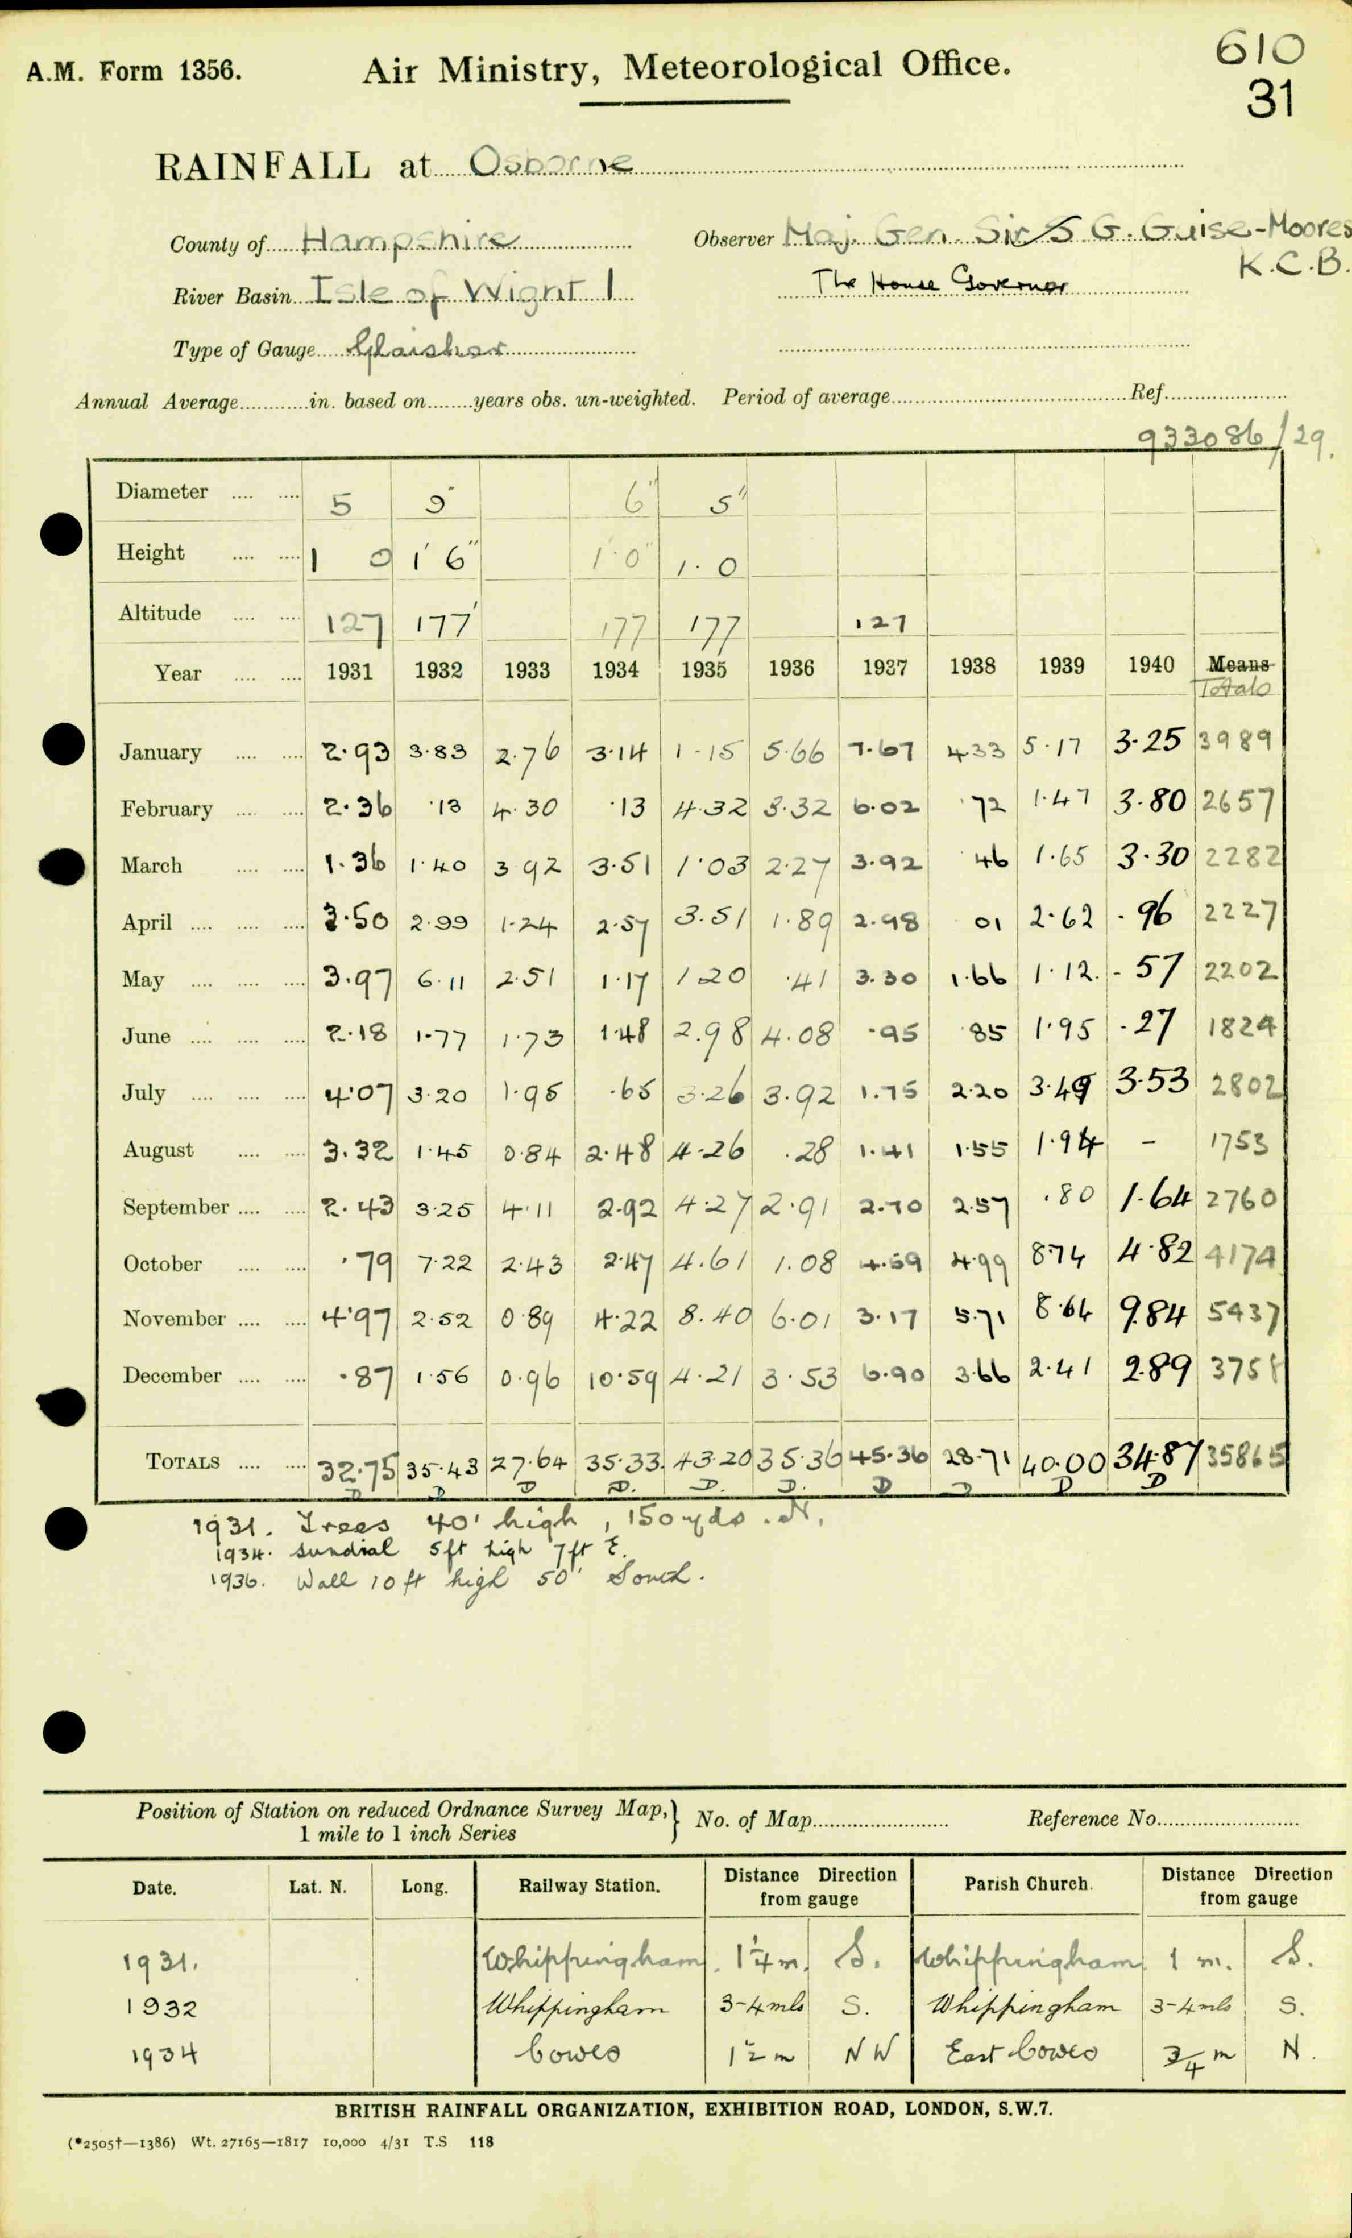 A.M. Form 1356.
Air Ministry, Meteorological Office.
610
31
RAINFALL at Osborne
County of Hampshire
Observer Maj. Gen. Sir S G. Guise-Moores
K.C.B.
River Basin Isle of Wight 1
The House Governor
Type of Gauge Glaisher
Annual Average in. based on years obs. un-weighted. Period of average Ref.
933086/29.
Diameter 5 5" 6" 5"
Height 1 0 1' 6" 1' 0" 1. 0
Altitude 127 177' 177 177 127
Year 1931 1932 1933 1934 1935 1936 1937 1938 1939 1940 Means
Totals
January 2.93 3.83 2.76 3.14 1.15 5.66 7.67 4.33 5.17 3.25 3989
February 2.36 .13 4.30 .13 4.32 3.32 6.02 .72 1.47 3.80 2657
March 1.36 1.40 3.92 3.51 1.03 2.27 3.92 .46 1.65 3.30 2282
April 3.50 2.99 1.24 2.57 3.51 1.89 2.98 01 2.62 .96 2227
May 3.97 6.11 2.51 1.17 1.20 .41 3.30 1.66 1.12 .57 2202
June 2.18 1.77 1.73 1.48 2.98 4.08 .95 .85 1.95 .27 1824
July 4.07 3.20 1.95 .65 3.26 3.92 1.75 2.20 3.49 3.53 2802
August 3.32 1.45 0.84 2.48 4.26 .28 1.41 1.55 1.94 - 1753
September 2.43 3.25 4.11 2.92 4.27 2.91 2.70 2.57 .80 1.64 2760
October .79 7.22 2.43 2.47 4.61 1.08 4.59 4.99 8.74 4.82 4174
November 4.97 2.52 0.89 4.22 8.40 6.01 3.17 5.71 8.64 9.84 5437
December .87 1.56 0.96 10.59 4.21 3.53 6.90 3.66 2.41 2.89 3758
TOTALS 32.75 35.43 27.64 35.33 43.20 35.36 45.36 28.71 40.00 34.87 35865
D D D D. D. D. D D D D
1931. Trees 40' high, 150 yds. N.
1934. Sundial 5ft high 7ft E.
1936. Wall 10 ft high 50' South.
Position of Station on reduced Ordnance Survey Map, 1 mile to 1 inch Series
No. of Map
Reference No.
Date. Lat. N. Long. Railway Station. Distance Direction from gauge Parish Church. Distance Direction from gauge
1931. Whippingham. 1¼ m. S. Whippingham. 1 m. S.
1932 Whippingham 3-4 mls S. Whippingham 3-4 mls S.
1934 Cowes 1½ m NW East Cowes ¾ m N.
BRITISH RAINFALL ORGANIZATION, EXHIBITION ROAD, LONDON, S.W.7.
(*2505†—1386) Wt. 27165—1817 10,000 4/31 T.S 118